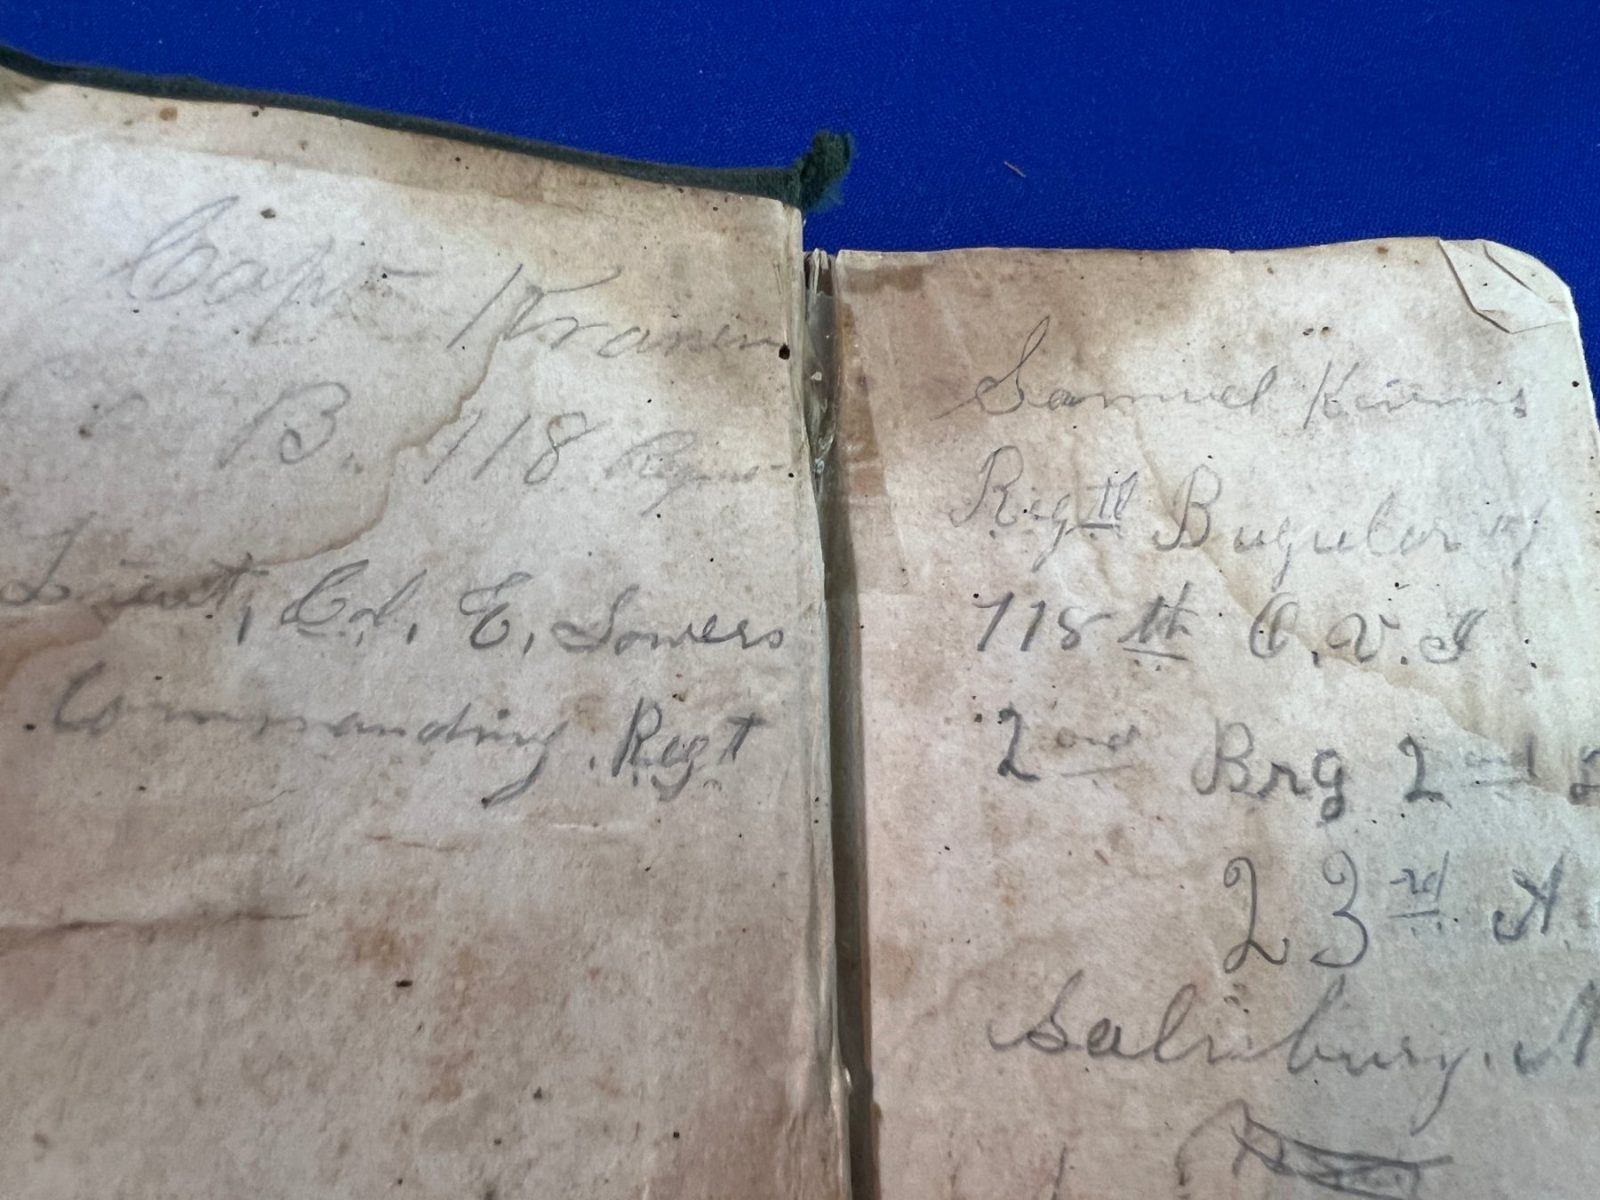 Capt
B. 118 Regmt
Lieut, Col, E, Sowers
Commanding. Regt
Samuel
Regtl Buguler of
118 th O.V.I
2 nd Brg 2 nd
23 rd A
Salisbury. N